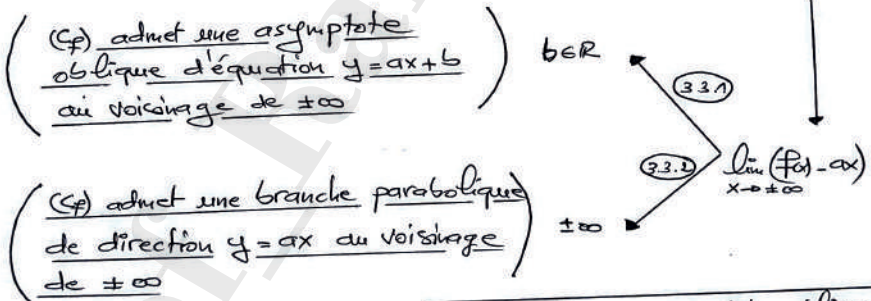 (Cf) admet une asymptote
oblique d'équation y = ax + b
au voisinage de ±∞
b∈R
3.3.1
3.3.2
lim (f(x) - ax)
x→±∞
(Cf) admet une branche parabolique
de direction y = ax au voisinage
de ±∞
±∞